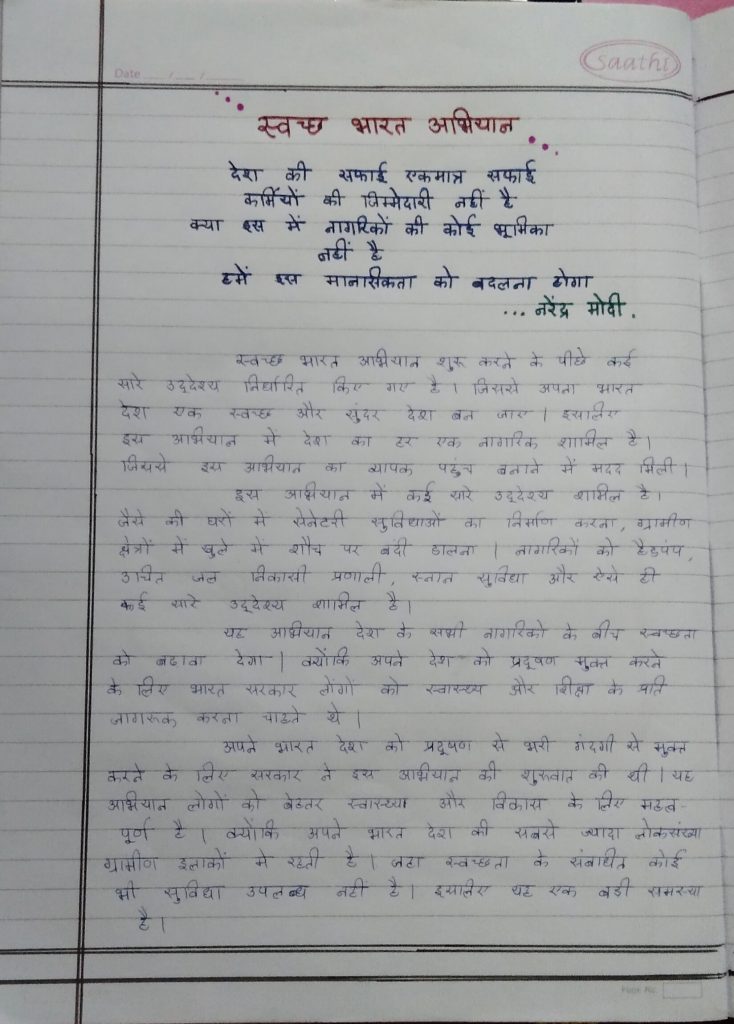 Date ___/___/_____
saathi
स्वच्छ भारत अभियान
देश की सफाई एकमात्र सफाई
कर्मियों की जिम्मेदारी नहीं है
क्या इस में नागरिकों की कोई भूमिका
नहीं है
हमें इस मानसिकता को बदलना होगा
... नरेंद्र मोदी.
स्वच्छ भारत अभियान शुरू करने के पीछे कई
सारे उद्देश्य निर्धारित किए गए है। जिससे अपना भारत
देश एक स्वच्छ और सुंदर देश बन जाए। इसलिए
इस अभियान में देश का हर एक नागरिक शामिल है।
जिससे इस अभियान का व्यापक पहुंच बनाने में मदद मिली।
इस अभियान में कई सारे उद्देश्य शामिल है।
जैसे की घरों में सेनेटरी सुविधाओं का निर्माण करना, ग्रामीण
क्षेत्रों में खुले में शौच पर बंदी डालना। नागरिकों को हैडपंप,
उचित जल निकासी प्रणाली, स्नान सुविधा और ऐसे ही
कई सारे उद्देश्य शामिल है।
यह अभियान देश के सभी नागरिको के बीच स्वच्छता
को बढावा देगा। क्योंकि अपने देश को प्रदूषण मुक्त करने
के लिए भारत सरकार लोंगों को स्वास्थ्य और शिक्षा के प्रति
जागरूक करना चाहते थे।
अपने भारत देश को प्रदूषण से भरी गंदगी से मुक्त
करने के लिए सरकार ने इस अभियान की शुरुवात की थी। यह
अभियान लोगों को बेहतर स्वास्थ्य और विकास के लिए महत्व-
पूर्ण है। क्योंकि अपने भारत देश की सबसे ज्यादा लोकसंख्या
ग्रामीण इलाकों मे रहती है। जहा स्वच्छता के संबंधित कोई
भी सुविधा उपलब्ध नहीं है। इसलिए यह एक बडी समस्या
है।
Page No.